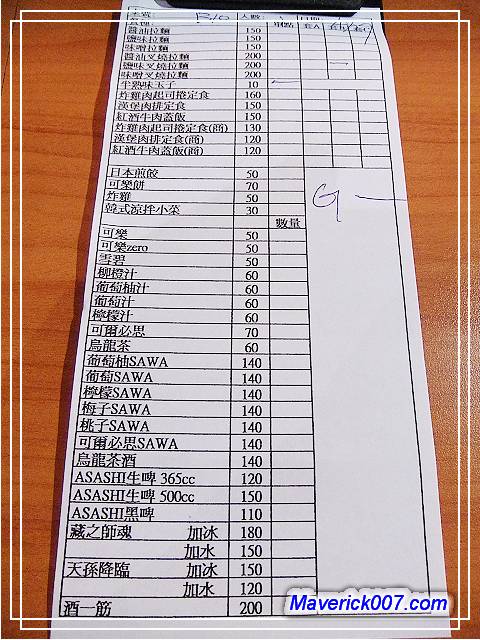 人數:
醬油拉麵 150
鹽味拉麵 150
味噌拉麵 150
醬油叉燒拉麵 200
鹽味叉燒拉麵 200
味噌叉燒拉麵 200
半熟味玉子 10
炸雞肉起司捲定食 160
漢堡肉排定食 150
紅酒牛肉蓋飯 150
炸雞肉起司捲定食(商) 130
漢堡肉排定食(商) 120
紅酒牛肉蓋飯(商) 120
日本煎餃 50
可樂餅 70
炸雞 50
韓式涼拌小菜 30
數量
可樂 50
可樂zero 50
雪碧 50
柳橙汁 60
葡萄柚汁 60
葡萄汁 60
檸檬汁 60
可爾必思 70
烏龍茶 60
葡萄柚SAWA 140
葡萄SAWA 140
檸檬SAWA 140
梅子SAWA 140
桃子SAWA 140
可爾必思SAWA 140
烏龍茶酒 140
ASASHI生啤 365cc 120
ASASHI生啤 500cc 150
ASASHI黑啤 110
藏之師魂 加冰 180
加水 150
天孫降臨 加冰 150
加水 120
酒一筋 200
Maverick007.com